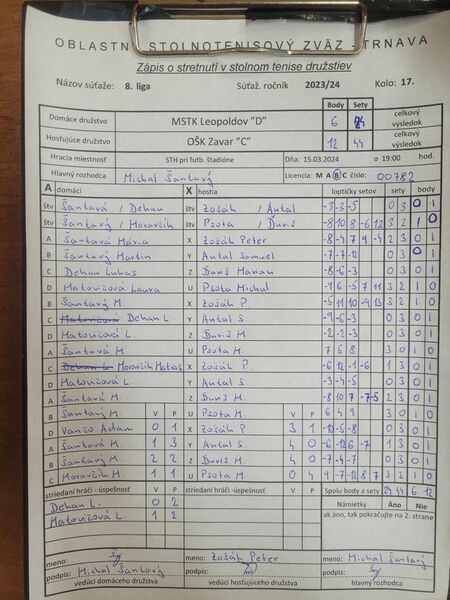 OBLASTNÝ STOLNOTENISOVÝ ZVÄZ - TRNAVA
Zápis o stretnutí v stolnom tenise družstiev
Názov súťaže: 8. liga Súťaž. ročník 2023/24 Kolo: 17.
Body Sety
Domáce družstvo MSTK Leopoldov "D" 6 24 celkový výsledok
Hosťujúce družstvo OŠK Zavar "C" 12 44 celkový výsledok
Hracia miestnosť STH pri futb. štadióne Dňa: 15.03.2024 o 19:00 hod.
Hlavný rozhodca Michal Šantavý Licencia: M A B C číslo: 00782
A domáci X hostia loptičky setov sety body
štv Šantavá / Dehan štv Zošák / Antal -3 -3 -5 0 3 0 1
štv Šantavý / Moravčík štv Psota / Ďuriš -8 10 8 -6 12 3 2 1 0
A Šantavá Mária X Zošák Peter -8 -4 7 9 -4 2 3 0 1
B Šantavý Martin Y Antal Samuel -7 -7 -12 0 3 0 1
C Dehan Lukas Z Ďuriš Marian -8 -6 -3 0 3 0 1
D Matovičová Laura U Psota Michal -9 6 -5 7 11 3 2 1 0
B Šantavý M. X Zošák P. -5 11 10 -9 13 3 2 1 0
C Dehan L. Y Antal S -9 -6 -3 0 3 0 1
D Matovičová L. Z Ďuriš M. -2 -2 -3 0 3 0 1
A Šantavá M. U Psota M. 7 5 8 3 0 1 0
C Dehan L. Moravčík Matias X Zošák P. -6 12 -1 -6 1 3 0 1
D Matovičová L. Y Antal S. -3 -4 -5 0 3 0 1
A Šantavá M. Z Ďuriš M. -8 10 7 -7 -5 2 3 0 1
B Šantavý M. V P U Psota M. V P 6 4 9 3 0 1 0
D Vančo Adam 0 1 X Zošák P 3 1 -10 -5 -8 0 3 0 1
A Šantavá M 1 3 Y Antal S 4 0 -6 -12 6 -7 1 3 0 1
B Šantavý M. 2 2 Z Ďuriš M 4 0 -7 -4 -7 0 3 0 1
C Moravčík M. 1 1 U Psota M. 0 4 9 -7 -12 8 7 3 2 1 0
striedaní hráči - úspešnosť V P striedaní hráči -úspešnosť V P Spolu body a sety 24 44 6 12
Dehan L. 0 2 Námietky Áno Nie
Matovičová L 1 2 ak áno, tak pokračujte na 2. strane
meno: meno: Zošák Peter meno: Michal Šantavý
podpis: Michal Šantavý podpis: podpis:
vedúci domáceho družstva vedúci hosťujúceho družstva hlavný rozhodca